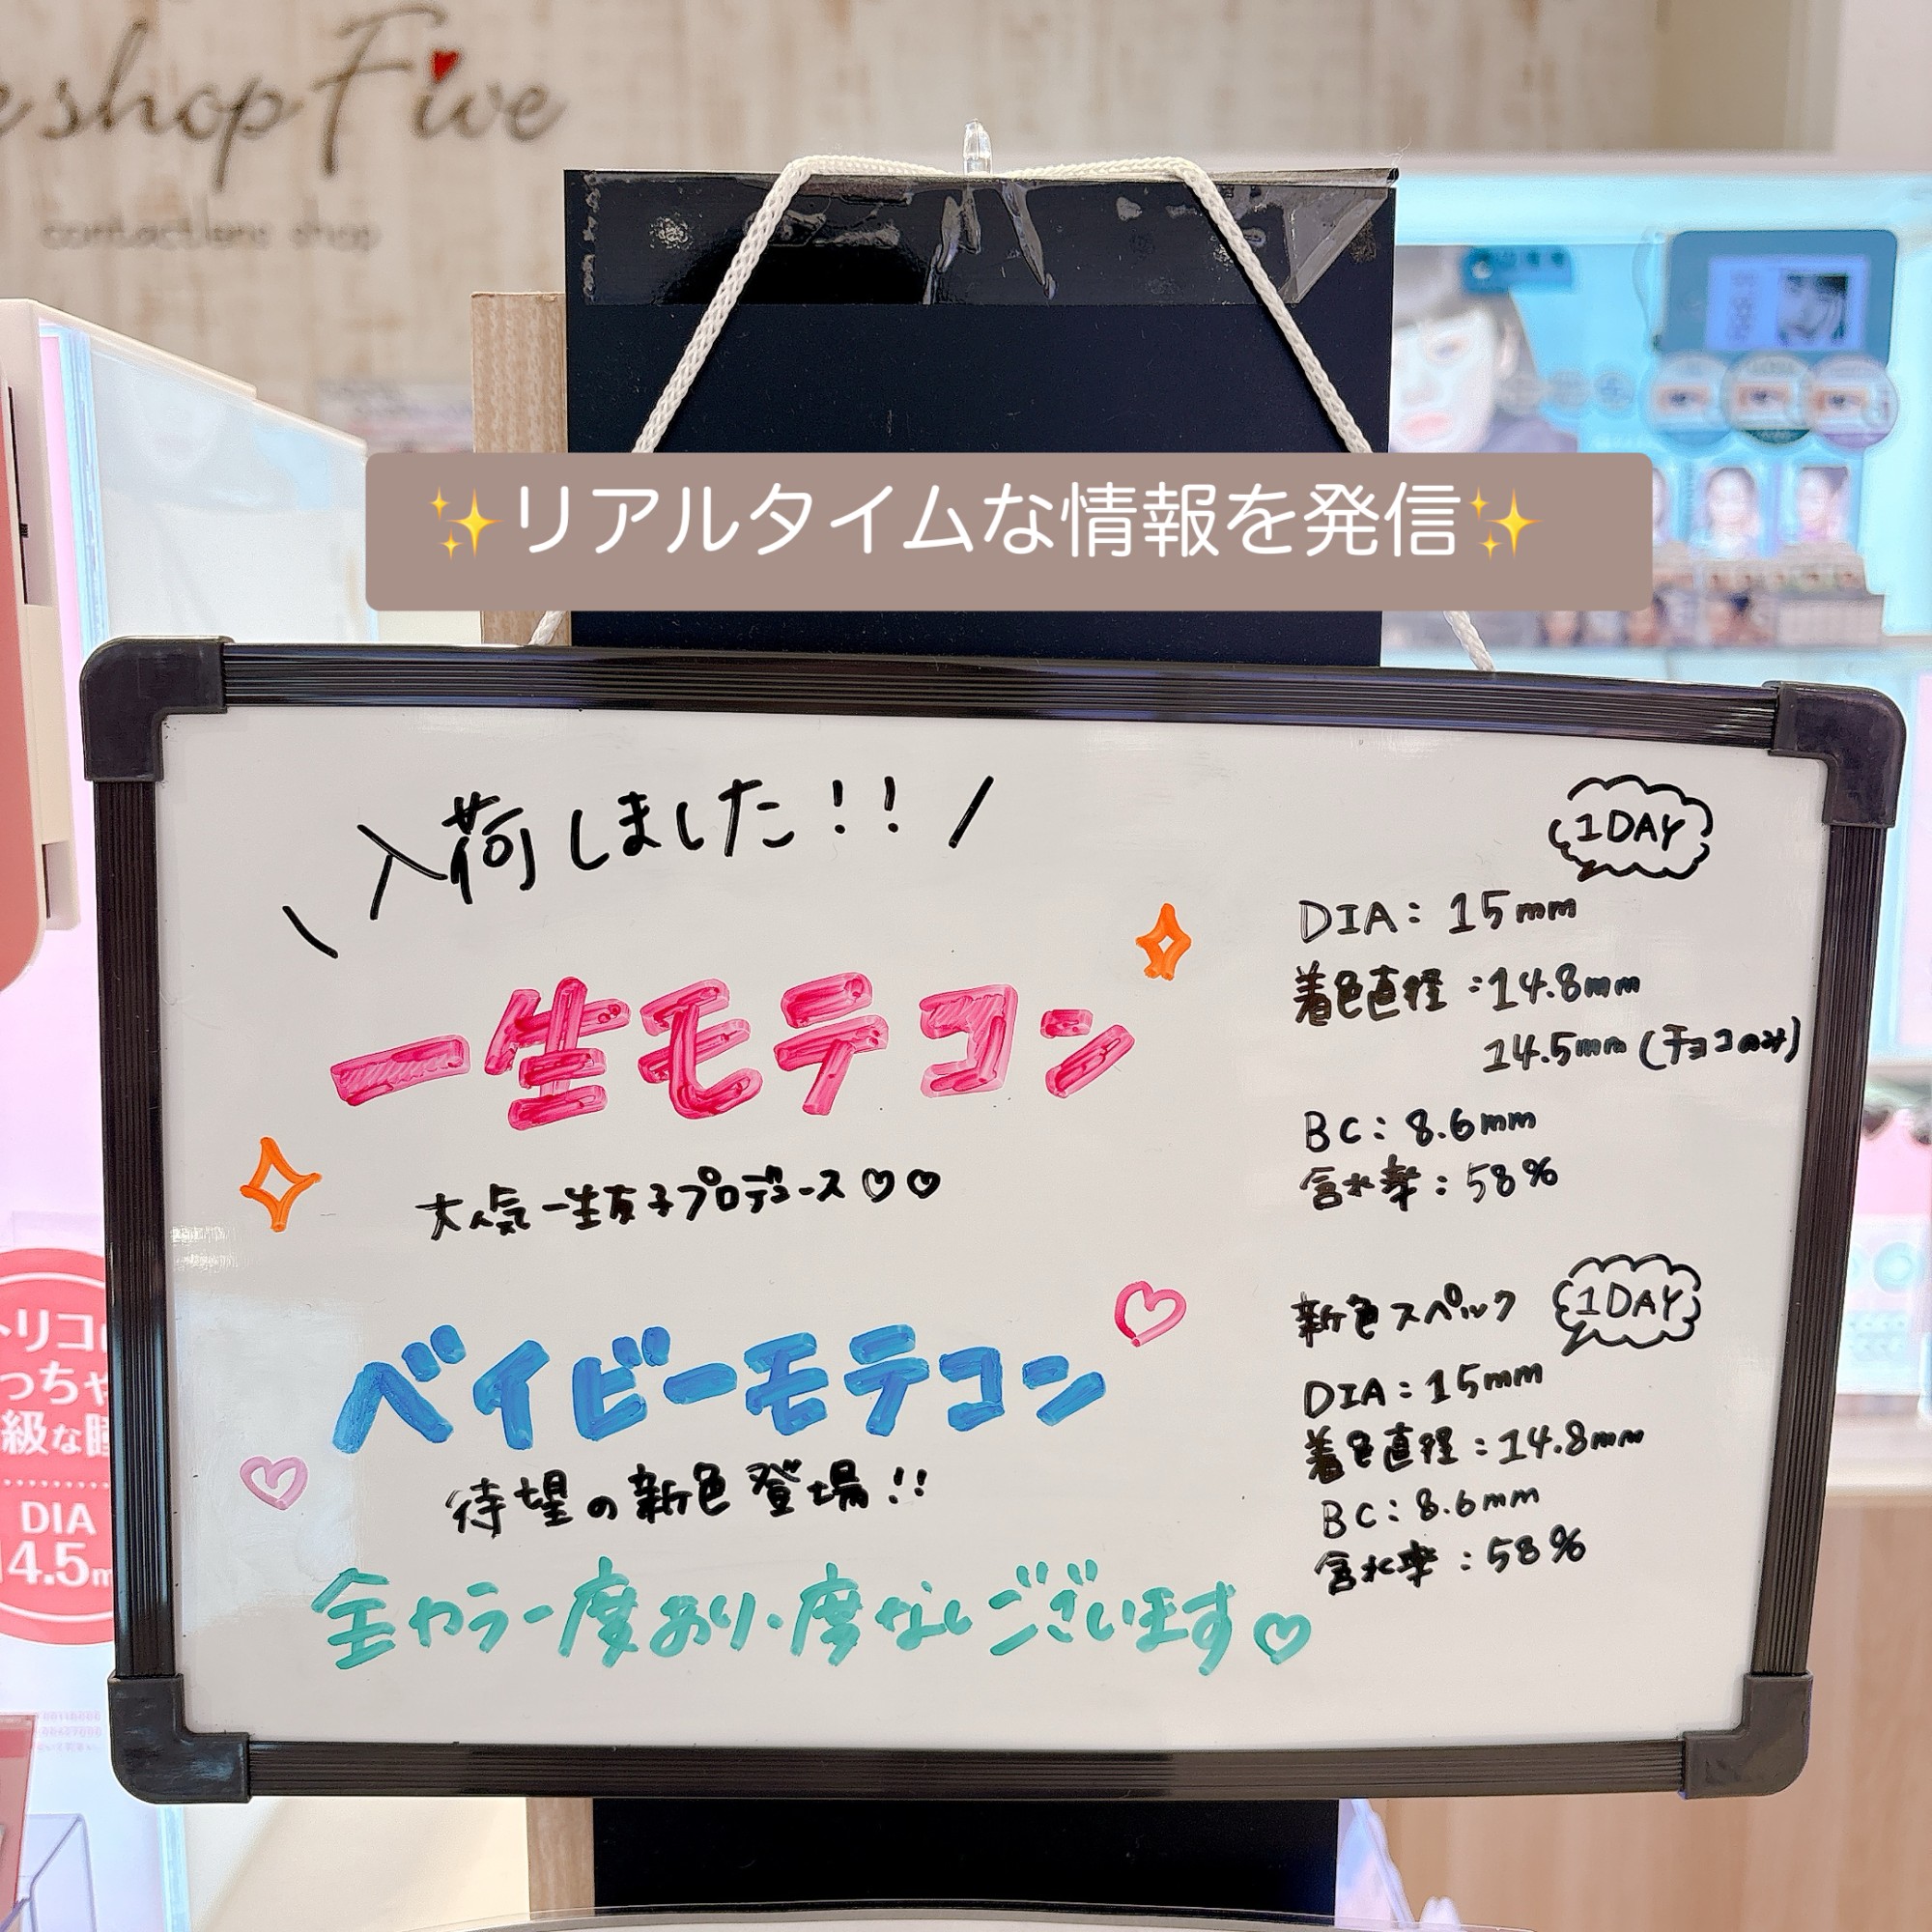 shop Five
contactlens shop
✨リアルタイムな情報を発信✨
\入荷しました!!/
一生モテコン
大人気一生友子プロデュース♡♡
ベイビーモテコン
待望の新色登場!!
全カラー度あり・度なしございます♡
1DAY
DIA: 15mm
着色直径:14.8mm
14.5mm (チョコのみ)
BC: 8.6mm
含水率:58%
新色スペック 1DAY
DIA:15mm
着色直径:14.8mm
BC:8.6mm
含水率:58%
トリコ
っちゃ
級な瞳
DIA
14.5m